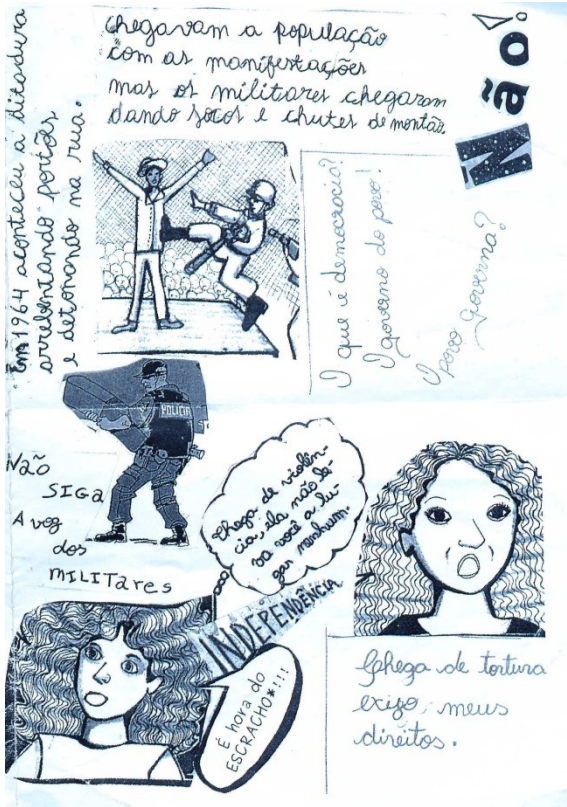 Em 1964 aconteceu a ditadura
arrebentando portões
e detonando na rua.
chegavam a população
com as manifestações
mas os militares chegaram
dando socos e chutes de montão
Não!
O que é democracia?
O governo do povo!
O povo governa?
POLÍCIA
Não
SIGA
A voz
dos
MILITARES
Chega de violên-
cia, ela não le-
va você a lu-
gar nenhum.
INDEPENDÊNCIA
É hora do
ESCRACHO*!!!
Chega de tortura
exijo, meus
direitos.